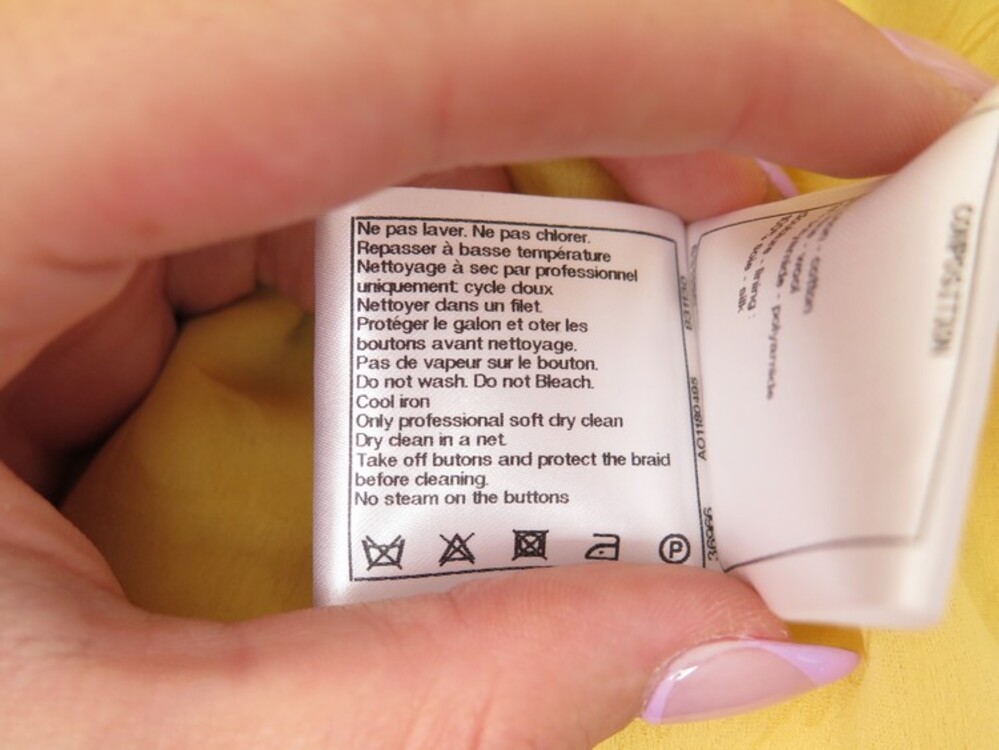 Ne pas laver. Ne pas chlorer.
Repasser à basse température
Nettoyage à sec par professionnel
uniquement: cycle doux
Nettoyer dans un filet.
Protéger le galon et oter les
boutons avant nettoyage.
Pas de vapeur sur le bouton.
Do not wash. Do not Bleach.
Cool iron
Only professional soft dry clean
Dry clean in a net.
Take off butons and protect the braid
before cleaning.
No steam on the buttons
P
AO1180495
36966
COMPOSITION
cotton
wool
polyamide
lining :
soie - silk